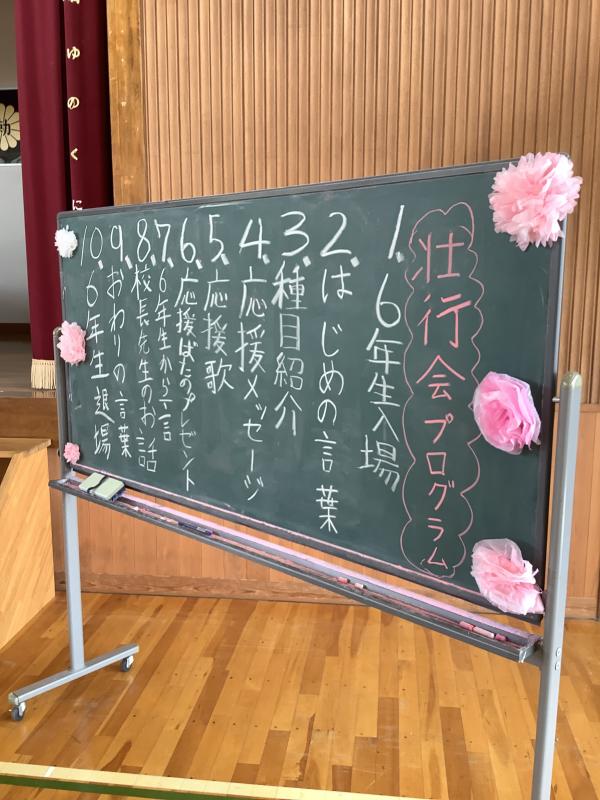 壮行会プログラム
1、6年生入場
2、はじめの言葉
3、種目紹介
4、応援メッセージ
5、応援歌
6、応援ばたのプレゼント
7、6年生から一言
8、校長先生のお話
9、おわりの言葉
10、6年生退場
ゆのくに